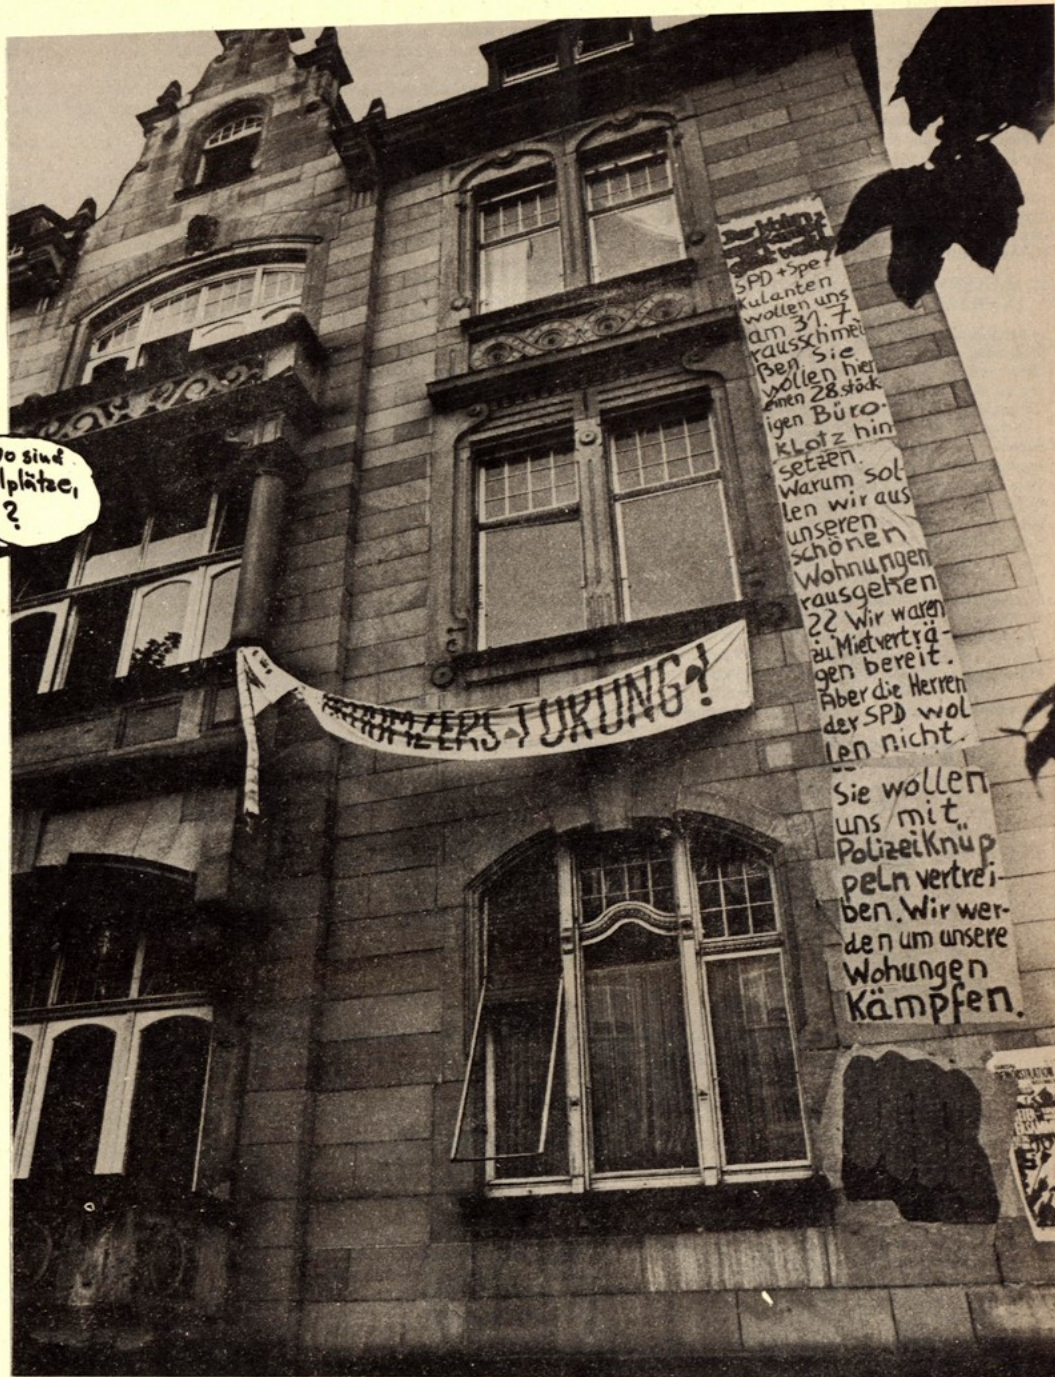 SPD + Spe
kulanten
wollen uns
am 31.7.
rausschmei
ßen. Sie
wollen hier
einen 28.stöck
igen Büro-
klotz hin
setzen.
Warum sol
len wir aus
unseren
schönen
Wohnungen
rausgehen
?? Wir waren
zu Mietverträ-
gen bereit.
Aber die Herren
der SPD wol
len nicht.
Sie wollen
uns mit
PolizeiKnüp
peln vertrei-
ben. Wir wer-
den um unsere
Wohungen
Kämpfen.
ZERSTÖRUNG?
wo sind
lplätze,
?
DEMONSTRATION